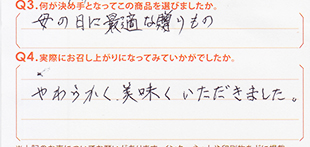 Q3.何が決め手となってこの商品を選びましたか。
母の日に最適な贈りもの
Q4.実際にお召し上がりになってみていかがでしたか。
やわらかく美味くいただきました。